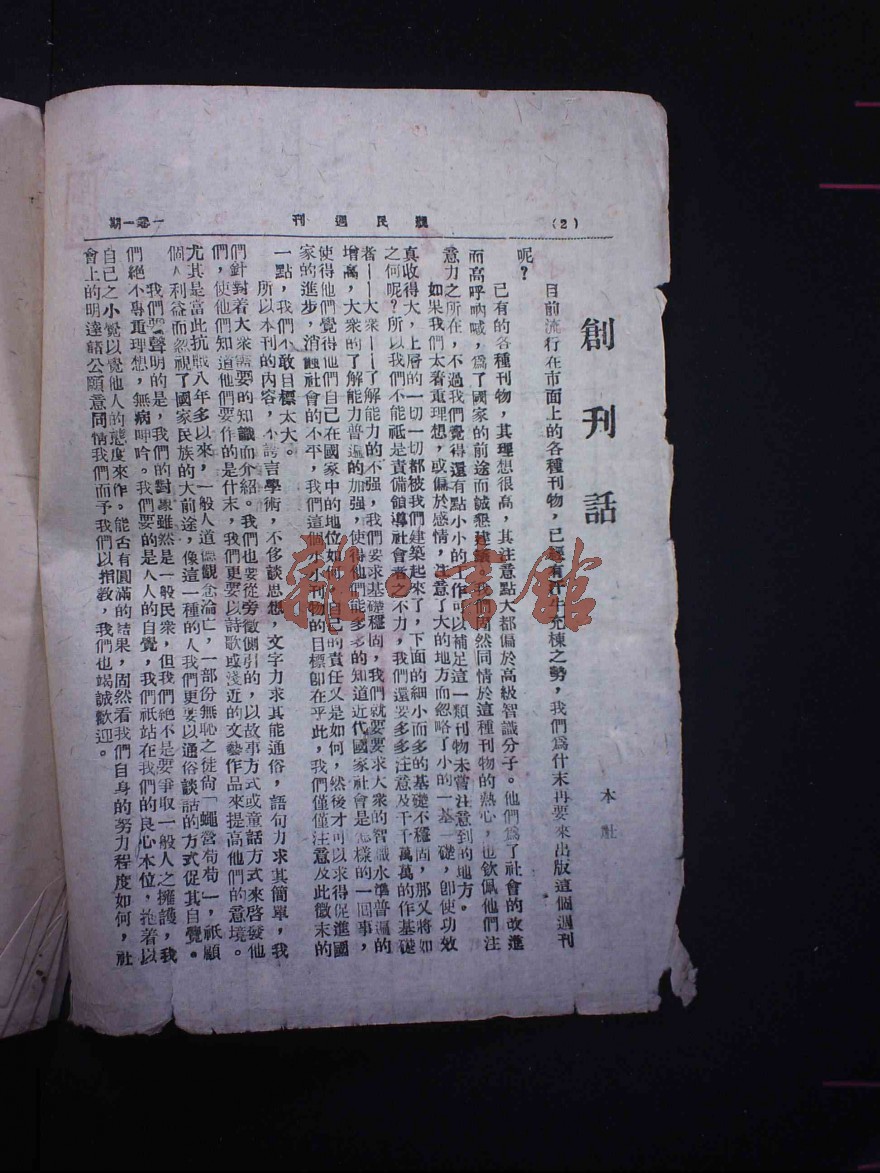 (2)
民週刊
一卷一期
創刊話
本社
目前流行在市面上的各種刊物，已經有汗牛充棟之勢，我們爲什末再要來出版這個週刊
呢？
已有的各種刊物，其理想很高，其注意點大都偏於高級智識分子。他們爲了社會的改進
而高呼吶喊，爲了國家的前途而誠懇建議，我們固然同情於這種刊物的熱心，也欽佩他們注
意力之所在，不過我們覺得還有點小小的工作可以補足這一類刊物未嘗注意到的地方。
如果我們太着重理想，或偏於感情，注意了大的地方而忽略了小的「基」礎，卽使功效
真收得大，上層的一切一切都被我們建築起來了，下面的細小而多的基礎不穩固，那又將如
之何呢？所以我們不能祇是責備領導社會者之不力，我們還要多多注意及千千萬萬的作基礎
者——大衆——了解能力的不强，我們要求基礎穩固，我們就要要求大衆的智識水準普遍的
增高，大衆的了解能力普遍的加强，使得他們能多多的知道近代國家社會是怎樣的一囘事，
使得他們覺得他們自己在國家中的地位如何，自己的責任又是如何，然後才可以求得促進國
家的進步，消蝕社會的不平，我們這個小小刊物的目標卽在乎此，我們僅僅注意及此微末的
一點，我們不敢目標太大。
所以本刊的內容，不誇言學術，不侈談思想，文字力求其能通俗，語句力求其簡單，我
們針對着大衆需要的知識而介紹。我們也要從旁徵側引的，以故事方式或童話方式來啓發他
們，使他們知道他們要作的是什末，我們更要以詩歌或淺近的文藝作品來提高他們的意境。
尤其是當此抗戰八年多以來，一般人道德觀念淪亡，一部份無恥之徒尙「蠅營苟苟」，祇顧
個人利益而忽視了國家民族的大前途，像這一種的人我們更要以通俗談話的方式促其自覺。
我們要聲明的是，我們的對象雖然是一般民衆，但我們絕不是要爭取一般人之擁護，我
們絕不專重理想，無病呻吟。我們要的是人人的自覺，我們祇站在我們的良心本位，抱着以
自己之小覺以覺他人的態度來作。能否有圓滿的結果，固然看我們自身的努力程度如何，社
會上的明達諸公願意同情我們而予我們以指敎，我們也竭誠歡迎。
雜·書館